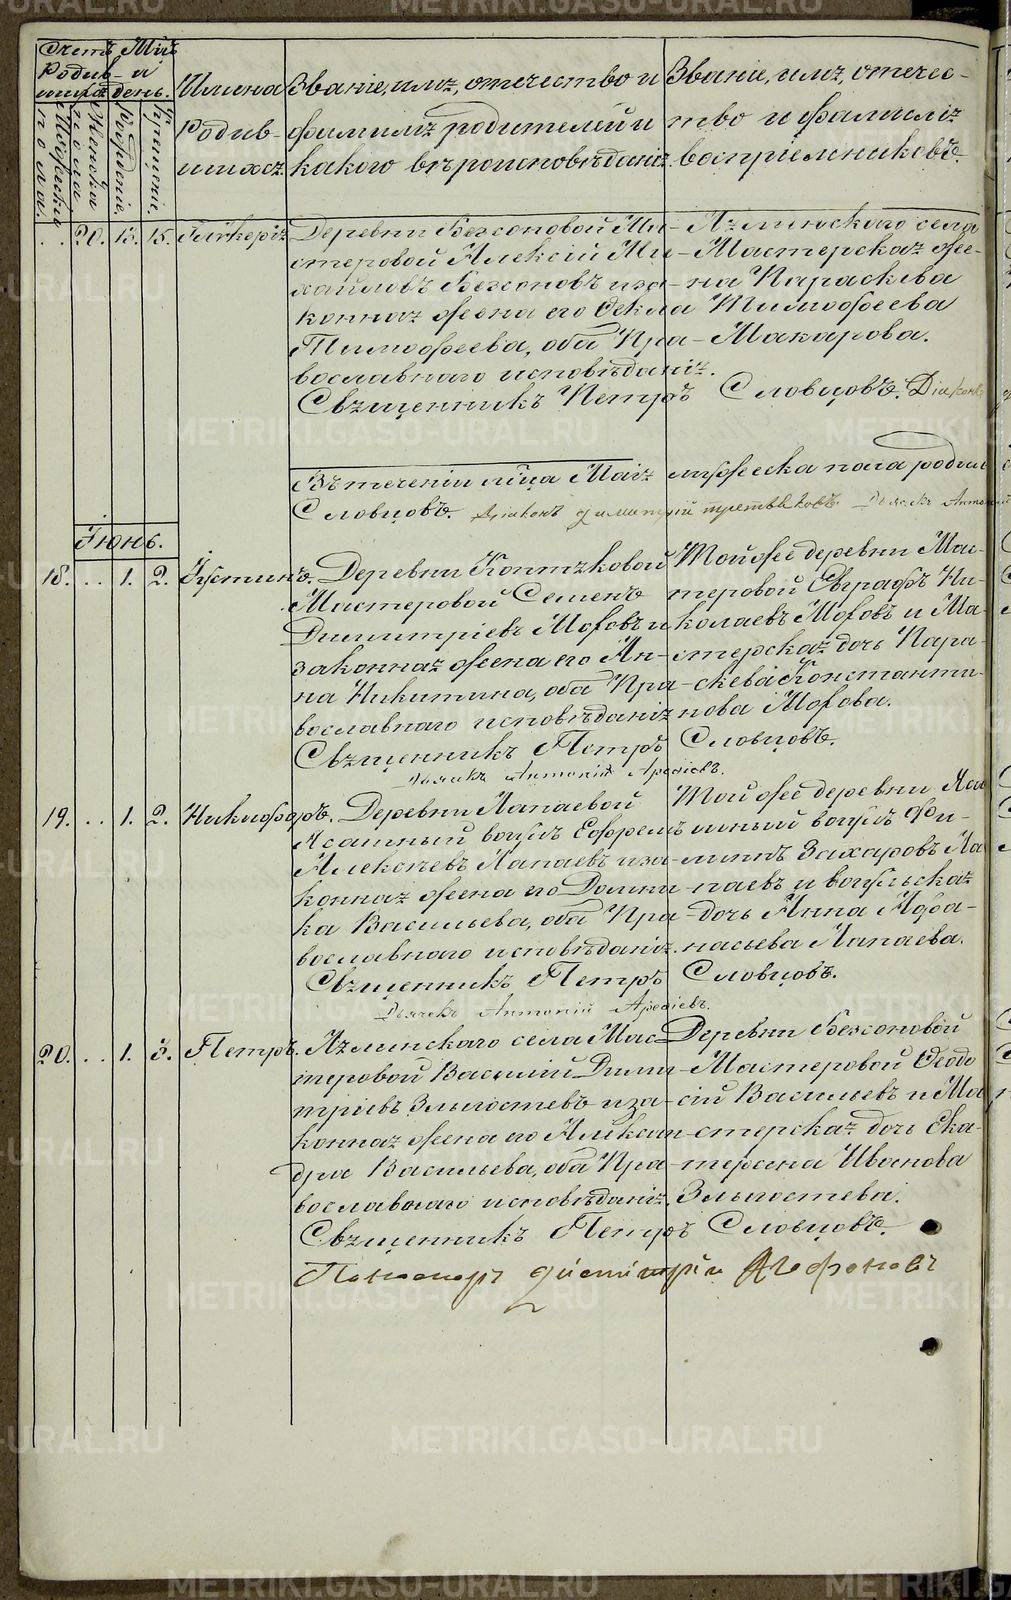 Счетъ Родив-шихся
Мѣсяцъ и день.
Мужеска пола.
Женска пола
Рожденіе.
Крещеніе.
Имена Родив-шихся.
Званіе, имя, отечество и
фамилія родителей и
какого вѣроисповѣданія.
Званіе, имя, отечес-
тво и фамилія
воспріемниковъ.
.. 20. 13. 15. Гликерія
Деревни Безсоновой Ма-
стеровой Алексій Ми-
хайловъ Безсоновъ и за-
конная жена его Ѳекла
Тимофеева, оба Пра-
вославнаго исповѣданія.
Аяминскаго села
Мастерская же-
на Параскева
Тимофеева
Макарова.
Священникъ Петръ Словцовъ. Діаконъ
Въ теченіи м҃ца Маія мужеска пола родил
Словцовъ. Діаконъ Димитрій Третьяковъ. Дьячекъ Антоній
Іюнь.
18. .. 1. 2. Іустинъ.
Деревни Коптяковой
Мастеровой Семенъ
Димитріевъ Мохов и
законная жена его Ан-
на Никитина, оба Пра-
вославнаго исповѣданія
Той же деревни Мас-
теровой Евграфъ Ни-
колаевъ Моховъ и Ма-
стерская дочь Пара-
скева Константи-
нова Мохова.
Священникъ Петръ Словцовъ.
Дьячекъ Антоній Арефіевъ.
19. .. 1. 2. Никифоръ.
Деревни Лапаевой
Ясашный вогулъ Ефремъ
Алексѣевъ Лапаевъ и за-
конная жена его Домни-
ка Васильева, оба Пра-
вославнаго исповѣданія.
Той же деревни Яса
шный вогулъ Фи-
липпъ Захаровъ Ла
паевъ и вогульская
дочь Анна Афа-
насьева Лапаева.
Священникъ Петръ Словцовъ.
Дьячекъ Антоній Арефіевъ.
20. .. 1. 3. Петръ.
Аяминскаго села Мас
теровой Василій Дими-
тріевъ Злыгостевъ и за-
конная жена его Алексан-
дра Васильева, оба Пра-
вославнаго исповѣданія.
Деревни Безсоновой
Мастеровой Ѳеодо
сій Васильевъ и Ма
стерская дочь Ека-
терина Иванова
Злыгостева.
Священникъ Петръ Словцовъ.
Пономарь Димитрій